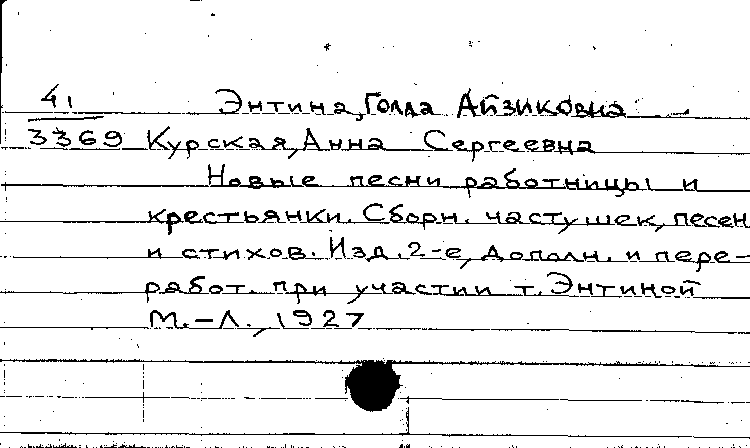 41 Энтина, Голда Айзиковна
3369 Курская, Анна Сергеевна
Новые песни работницы и
крестьянки. Сборн. частушек, песен
и стихов. Изд. 2-е, дополн. и пере-
работ. при участии т. Энтиной
М.-Л., 1927